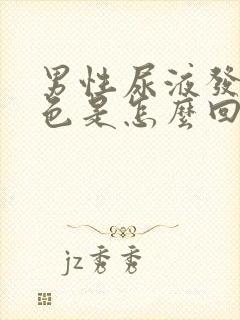 男性尿液發
色是怎麼回
jz秀秀